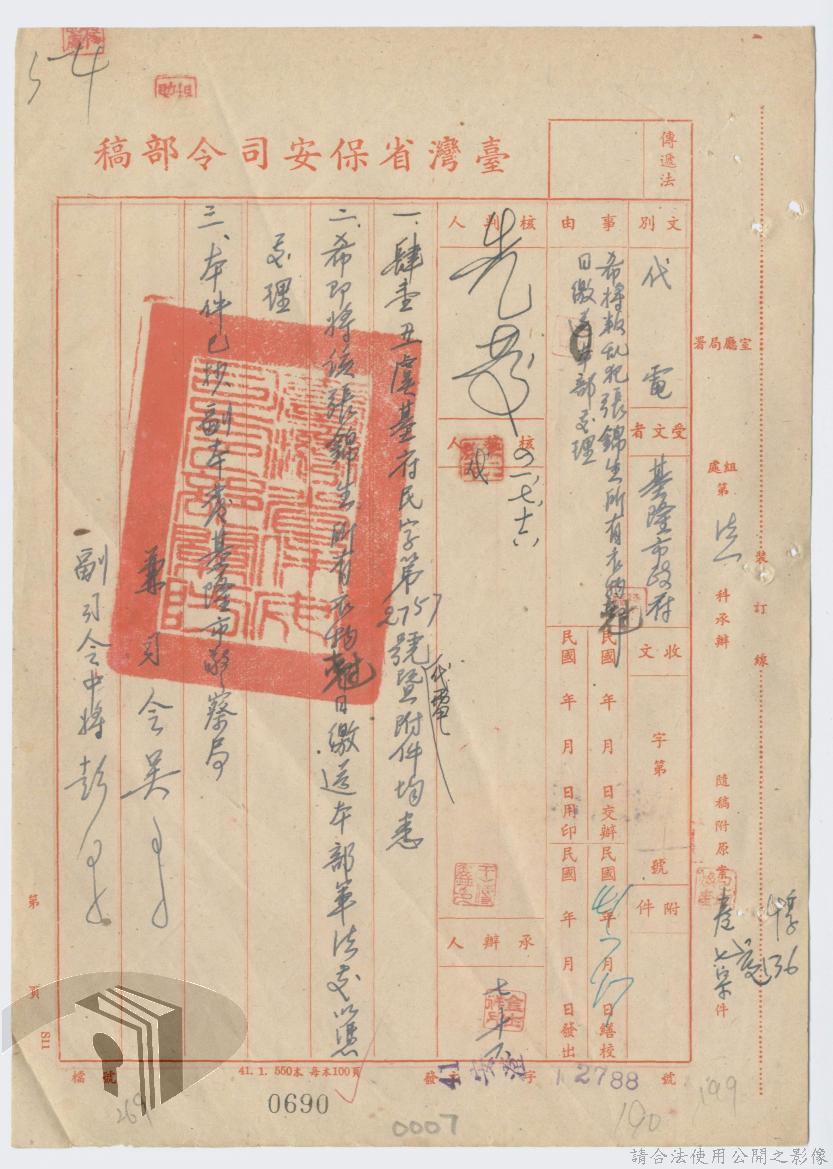 臺灣省保安司令部稿
傳遞法
文別
代電
受文者
基隆市政府
收文
字第
號
附件
事由
希將叛乱犯張錦生所有衣物
日繳送本部處理
民國 年 月 日交辦
民國 年 月 日繕校
民國 年 月 日用印
民國 年 月 日發出
核判人
核稿人
承辦人
一、肆壹丑虞基府民字第2757號代電暨附件均悉
二、希即將該張錦生所有衣物尅日繳送本部軍法處以憑
處理
三、本件已抄副本發基隆市警察局
兼司令吳
副司令中將彭
室廳局署
處組第
科承辦
隨稿附原案
件
裝訂線
第 頁
S11
檔號
41. 1. 550本 每本100頁
發文
41
字
2788
號
0690
0007
190
199
請合法使用公開之影像